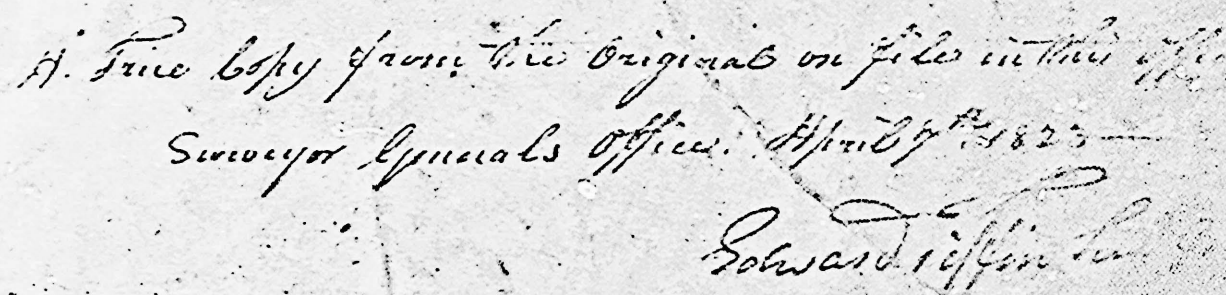 A. True Copy from the Original on file in this office
Surveyor Generals Office. April 7th 1823
Edward Tiffin